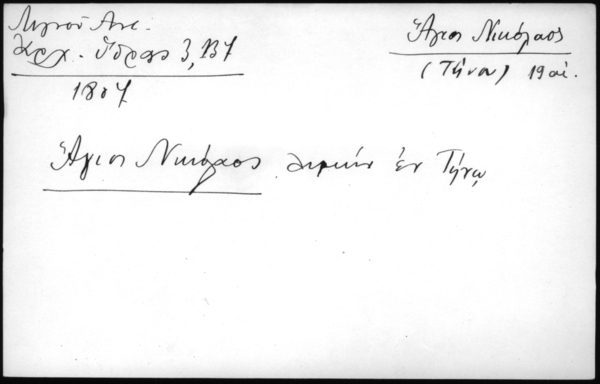 Λιγνού Αντ.
Ἀρχ. Ὕδρας 3, 137
1807
Ἅγιος Νικόλαος
(Τήνου) 19 αἰ.
Ἅγιος Νικόλαος λιμήν ἐν Τήνῳ